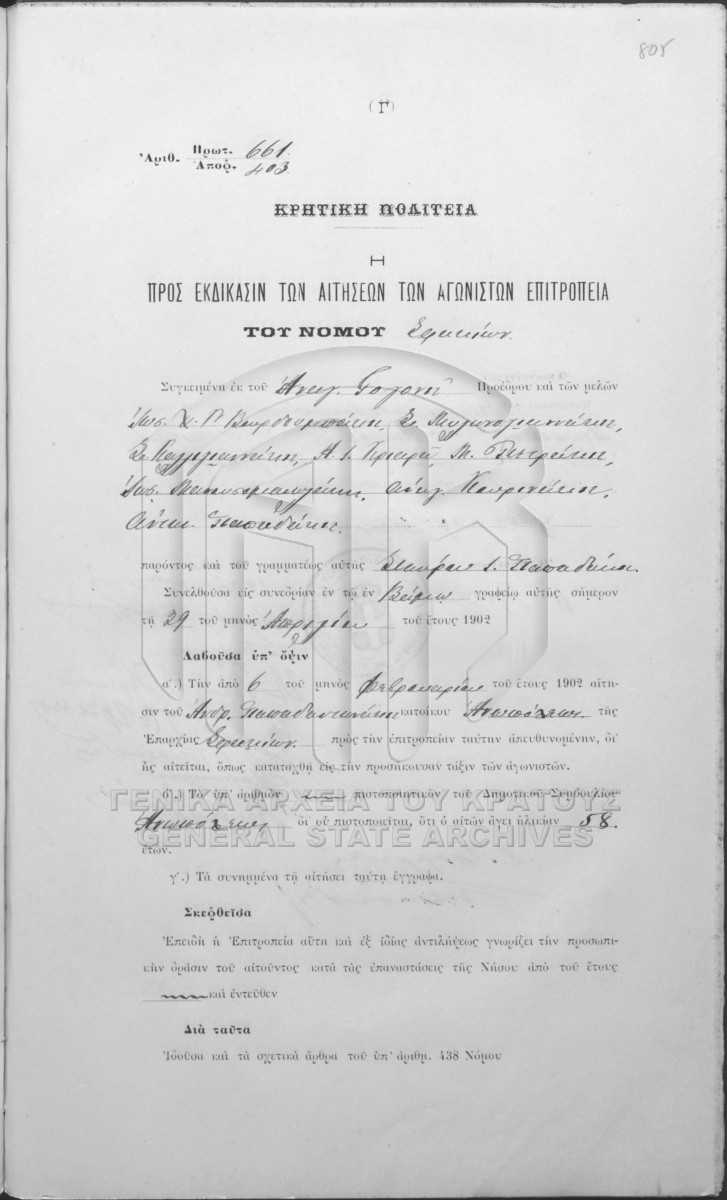 805
(Γ)
Ἀριθ. Πρωτ. 661.
Ἀποφ. 403.
ΚΡΗΤΙΚΗ ΠΟΛΙΤΕΙΑ
Η
ΠΡΟΣ ΕΚΔΙΚΑΣΙΝ ΤΩΝ ΑΙΤΗΣΕΩΝ ΤΩΝ ΑΓΩΝΙΣΤΩΝ ΕΠΙΤΡΟΠΕΙΑ
ΤΟΥ ΝΟΜΟΥ Σφακίων
Συγκειμένη ἐκ τοῦ Ἀναγ. Προέδρου καὶ τῶν μελῶν
Ἰωσ. Χ. Π
Μ. Πετράκη,
Ἰωσ. Μανουσογιαννάκη, Ἀναγ.
Παπαδάκη.
παρόντος καὶ τοῦ γραμματέως αὐτῆς Σταύρου Ι. Παπαδάκη.
Συνελθοῦσα εἰς συνεδρίαν ἐν τῷ ἐν Βάμῳ γραφείῳ αὐτῆς σήμερον
τῇ 29 τοῦ μηνὸς Ἀπριλίου τοῦ ἔτους 1902
Λαβοῦσα ὑπ' ὄψιν
α΄.) Τὴν ἀπὸ 6 τοῦ μηνὸς Φεβρουαρίου τοῦ ἔτους 1902 αἴτη-
σιν τοῦ Ἀνδρ. Παπαδαντωνάκη κατοίκου Ἀνωπόλεως τῆς
Ἐπαρχίας Σφακίων πρὸς τὴν ἐπιτροπείαν ταύτην ἀπευθυνομένην, δι'
ἧς αἰτεῖται, ὅπως καταταχθῇ εἰς τὴν προσήκουσαν τάξιν τῶν ἀγωνιστῶν.
β΄.) Τὸ ὑπ' ἀριθμὸν πιστοποιητικὸν τοῦ Δημοτικοῦ Συμβουλίου
ΓΕΝΙΚΑ ΑΡΧΕΙΑ ΤΟΥ ΚΡΑΤΟΥΣ
Ἀνωπόλεως δι' οὗ πιστοποιεῖται, ὅτι ὁ αἰτῶν ἄγει ἡλικίαν 58.
GENERAL STATE ARCHIVES
ἐτῶν.
γ΄.) Τὰ συνημμένα τῇ αἰτήσει ταύτῃ ἔγγραφα.
Σκεφθεῖσα
Ἐπειδὴ ἡ Ἐπιτροπεία αὕτη καὶ ἐξ ἰδίας ἀντιλήψεως γνωρίζει τὴν προσωπι-
κὴν δρᾶσιν τοῦ αἰτοῦντος κατὰ τὰς ἐπαναστάσεις τῆς Νήσου ἀπὸ τοῦ ἔτους
καὶ ἐντεῦθεν
Διὰ ταῦτα
Ἰδοῦσα καὶ τὰ σχετικὰ ἄρθρα τοῦ ὑπ' ἀριθμ. 438 Νόμου